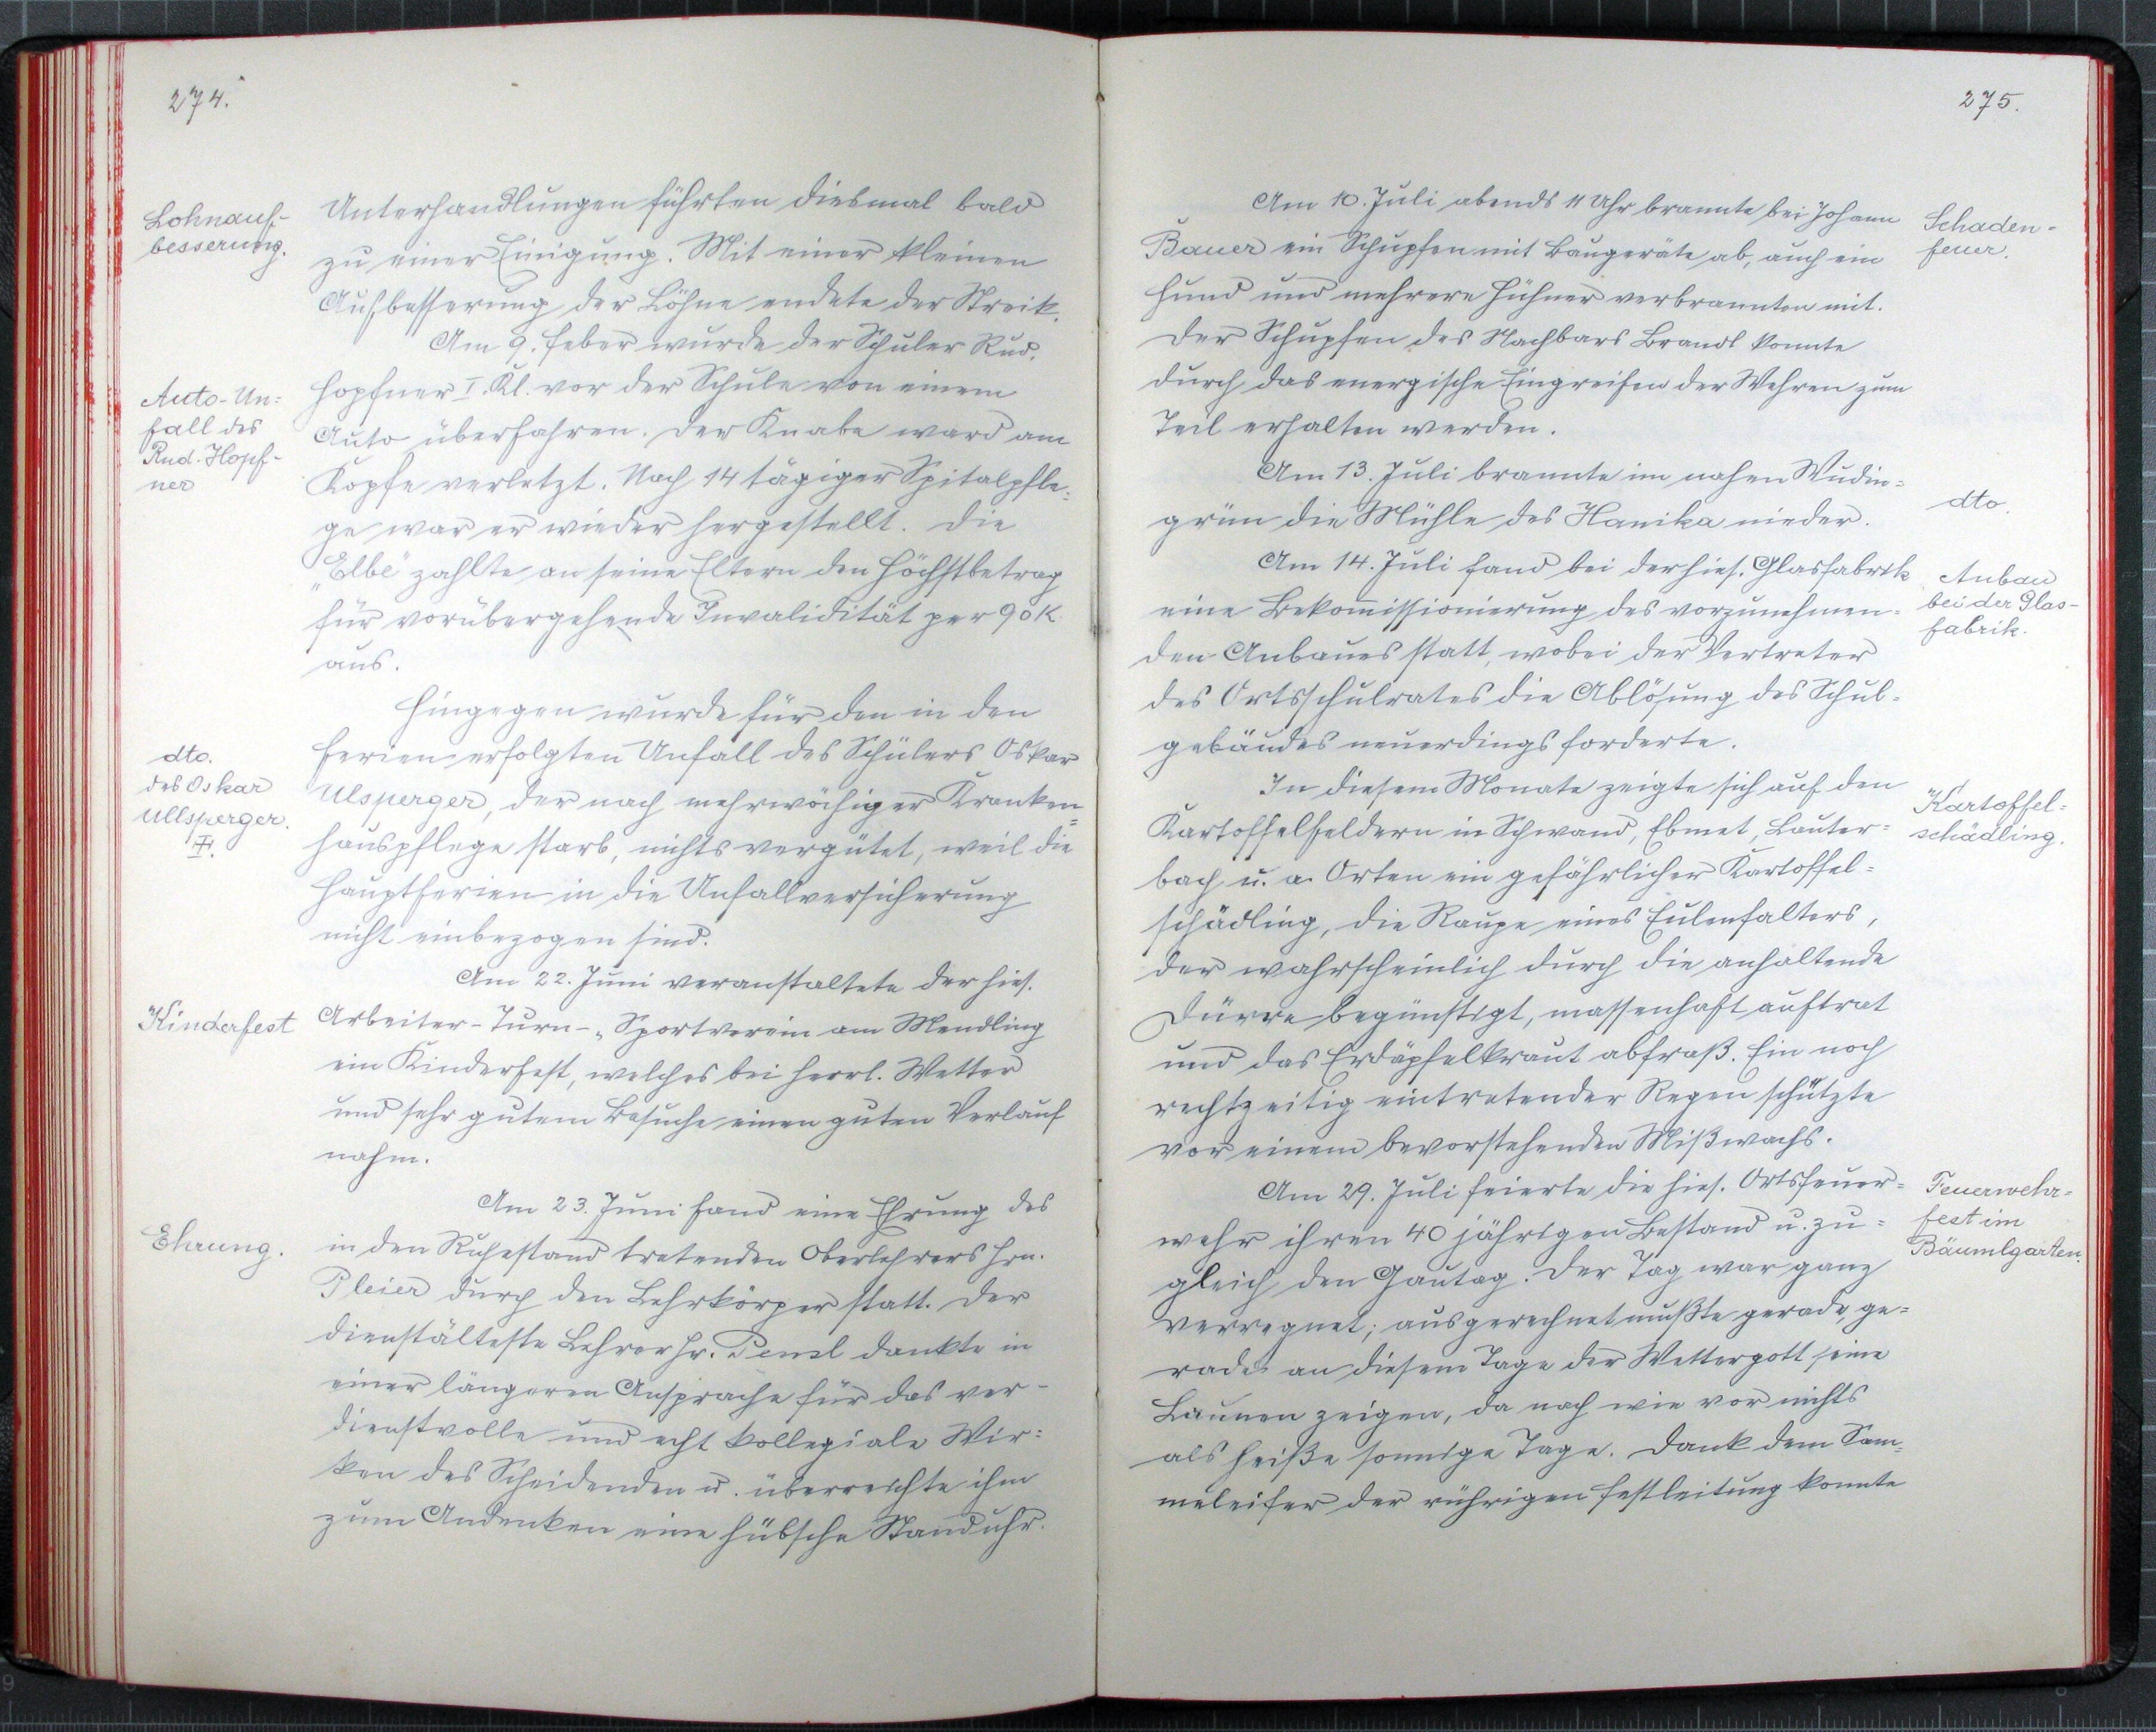 274.
Lohnauf-
besserung.
Unterhandlungen führten diesmal bald
zu einer Einigung. Mit einer kleinen
Aufbesserung der Löhne endete der Streik.
Am 9. Feber wurde der Schüler Rud.
Auto-Un=
fall des
Rud. Hopf-
ner
Hopfner I. Kl. vor der Schule von einem
Auto überfahren. Der Knabe ward am
Kopfe verletzt. Nach 14 tägiger Spitalpfle=
ge war er wieder hergestellt. Die
„Elbe" zahlte an seine Eltern den Höchstbetrag
für vorübergehende Invalidität per 90 K
aus.
Hingegen wurde für den in den
dto.
des Oskar
Ullsperger.
II.
Ferien erfolgten Unfall des Schülers Oskar
Ulsperger, der nach mehrwöchiger Kranken=
hauspflege starb, nichts vergütet, weil die
Hauptferien in die Unfallversicherung
nicht einbezogen sind.
Am 22. Juni veranstaltete der hies.
Kinderfest
Arbeiter-Turn-„Sportverein am Mendling
ein Kinderfest, welches bei herrl. Wetter
und sehr gutem Besuche einen guten Verlauf
nahm.
Am 23. Juni fand eine Ehrung des
Ehrung.
in den Ruhestand tretenden Oberlehrers Hrn.
Pleier durch den Lehrkörper statt. Der
dienstälteste Lehrer Hr. Pensl dankte in
einer längeren Ansprache für das ver-
dienstvolle und echt kollegiale Wir=
ken des Scheidenden u. überreichte ihm
zum Andenken eine hübsche Standuhr.
275.
Am 10. Juli abends 11 Uhr brannte bei Johann
Bauer ein Schupfen mit Baugeräte ab, auch ein
Hund und mehrere Hühner verbrannten mit.
Der Schupfen des Nachbars Brandl konnte
durch das energische Eingreifen der Wehren zum
Teil erhalten werden.
Schaden-
feuer.
Am 13. Juli brannte im nahen Wudin=
grün die Mühle des Hanika nieder.
dto.
Am 14. Juli fand bei der hies. Glasfabrik
eine Bekommissionierung des vorzunehmen=
den Anbaues statt, wobei der Vertreter
des Ortsschulrates die Ablösung des Schul=
gebäudes neuerdings forderte.
Anbau
bei der Glas-
fabrik.
In diesem Monate zeigte sich auf den
Kartoffelfeldern in Schwand, Ebmet, Lauter=
bach u. a. Orten ein gefährlicher Kartoffel=
schädling, die Raupe eines Eulenfalters,
der wahrscheinlich durch die anhaltende
Dürre begünstigt, massenhaft auftrat
und das Erdäpfelkraut abfraß. Ein noch
rechtzeitig eintretender Regen schützte
vor einem bevorstehenden Mißwachs.
Kartoffel=
schädling.
Am 29. Juli feierte die hies. Ortsfeuer=
wehr ihren 40 jährigen Bestand u. zu=
gleich den Gautag. Der Tag war ganz
verregnet; ausgerechnet mußte gerade, ge=
rade an diesem Tage der Wettergott seine
Launen zeigen, da nach wie vor nichts
als heiße sonnige Tage. Dank dem Sam=
meleifer der rührigen Festleitung konnte
Feuerwehr=
fest im
Bäumlgarten.